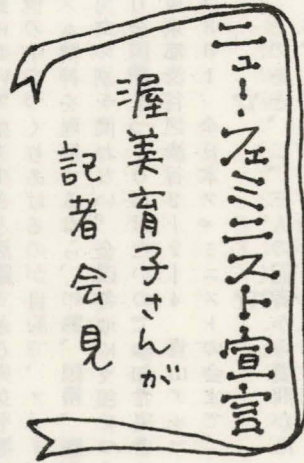 ニュー・フェミニスト宣言
渥美育子さんが
記者会見